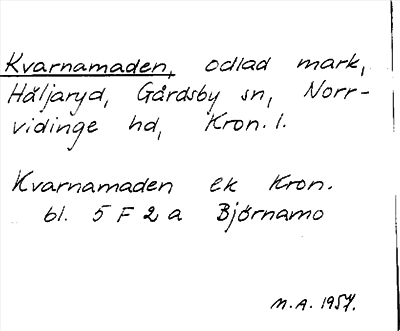 Kvarnamaden, odlad mark,
Häljaryd, Gårdsby sn, Norr-
vidinge hd, Kron. l.
Kvarnamaden ek Kron.
bl. 5 F 2 a Björnamo
M.A. 1957.